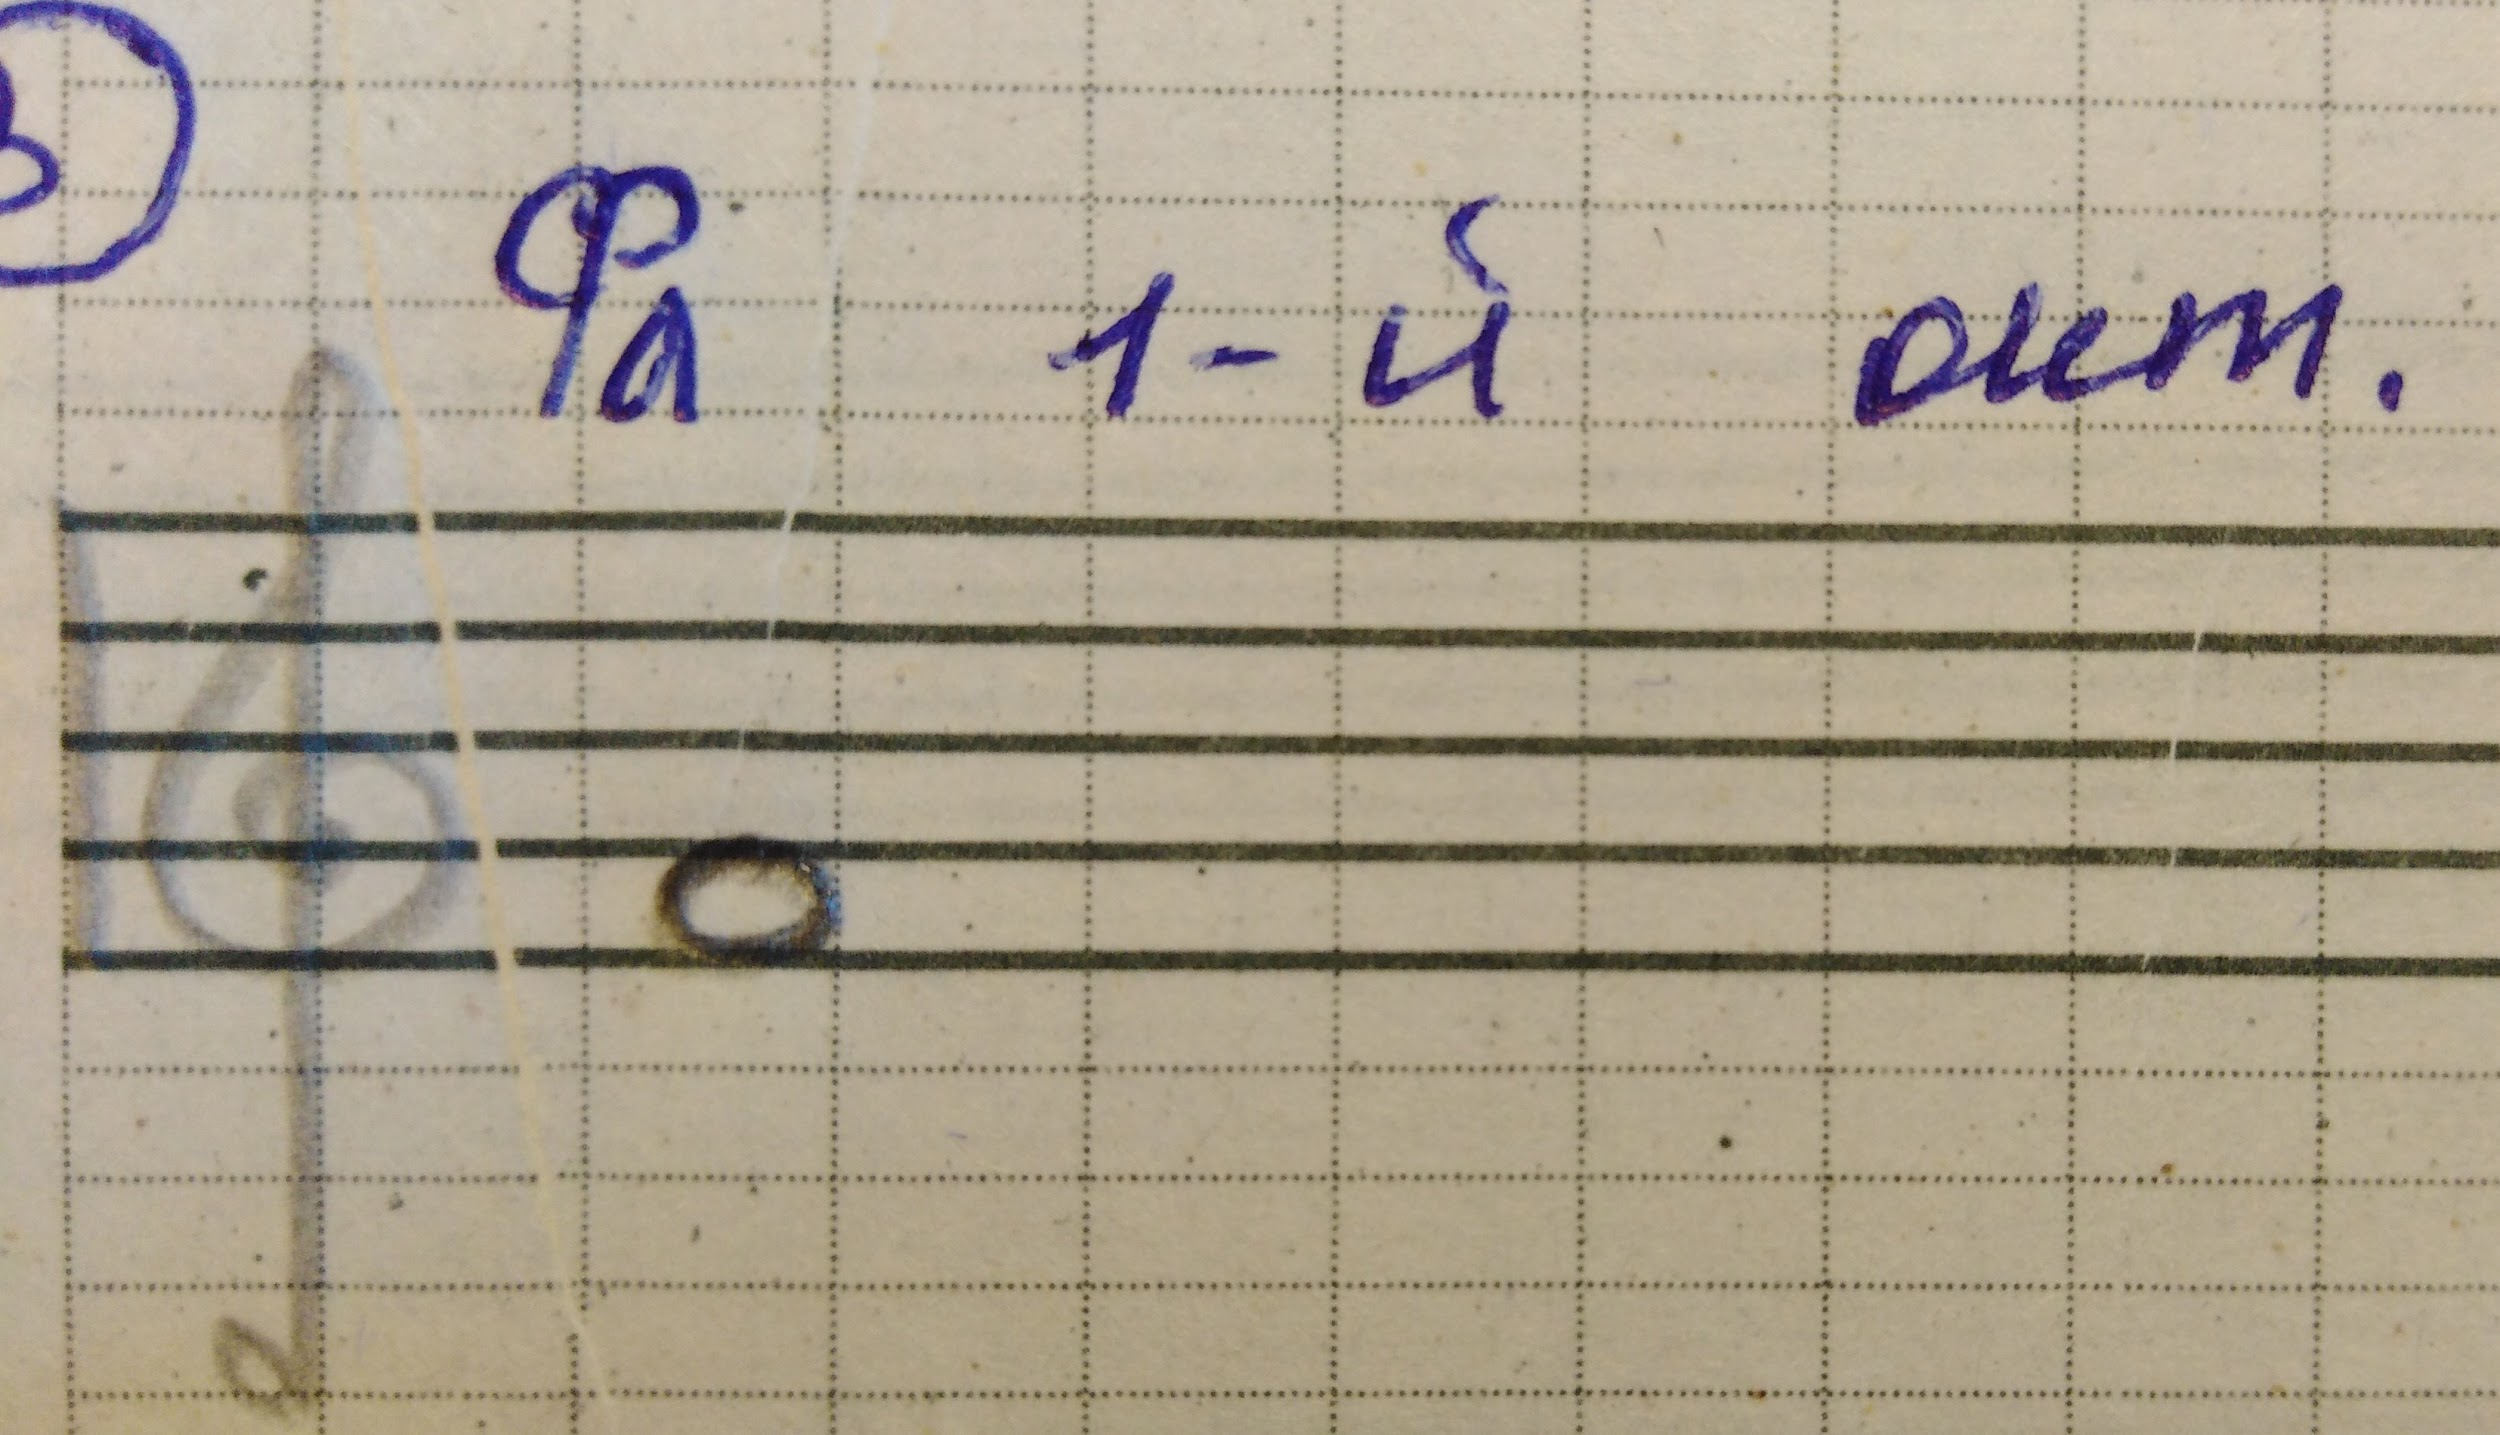 3
Фа 1-й окт.